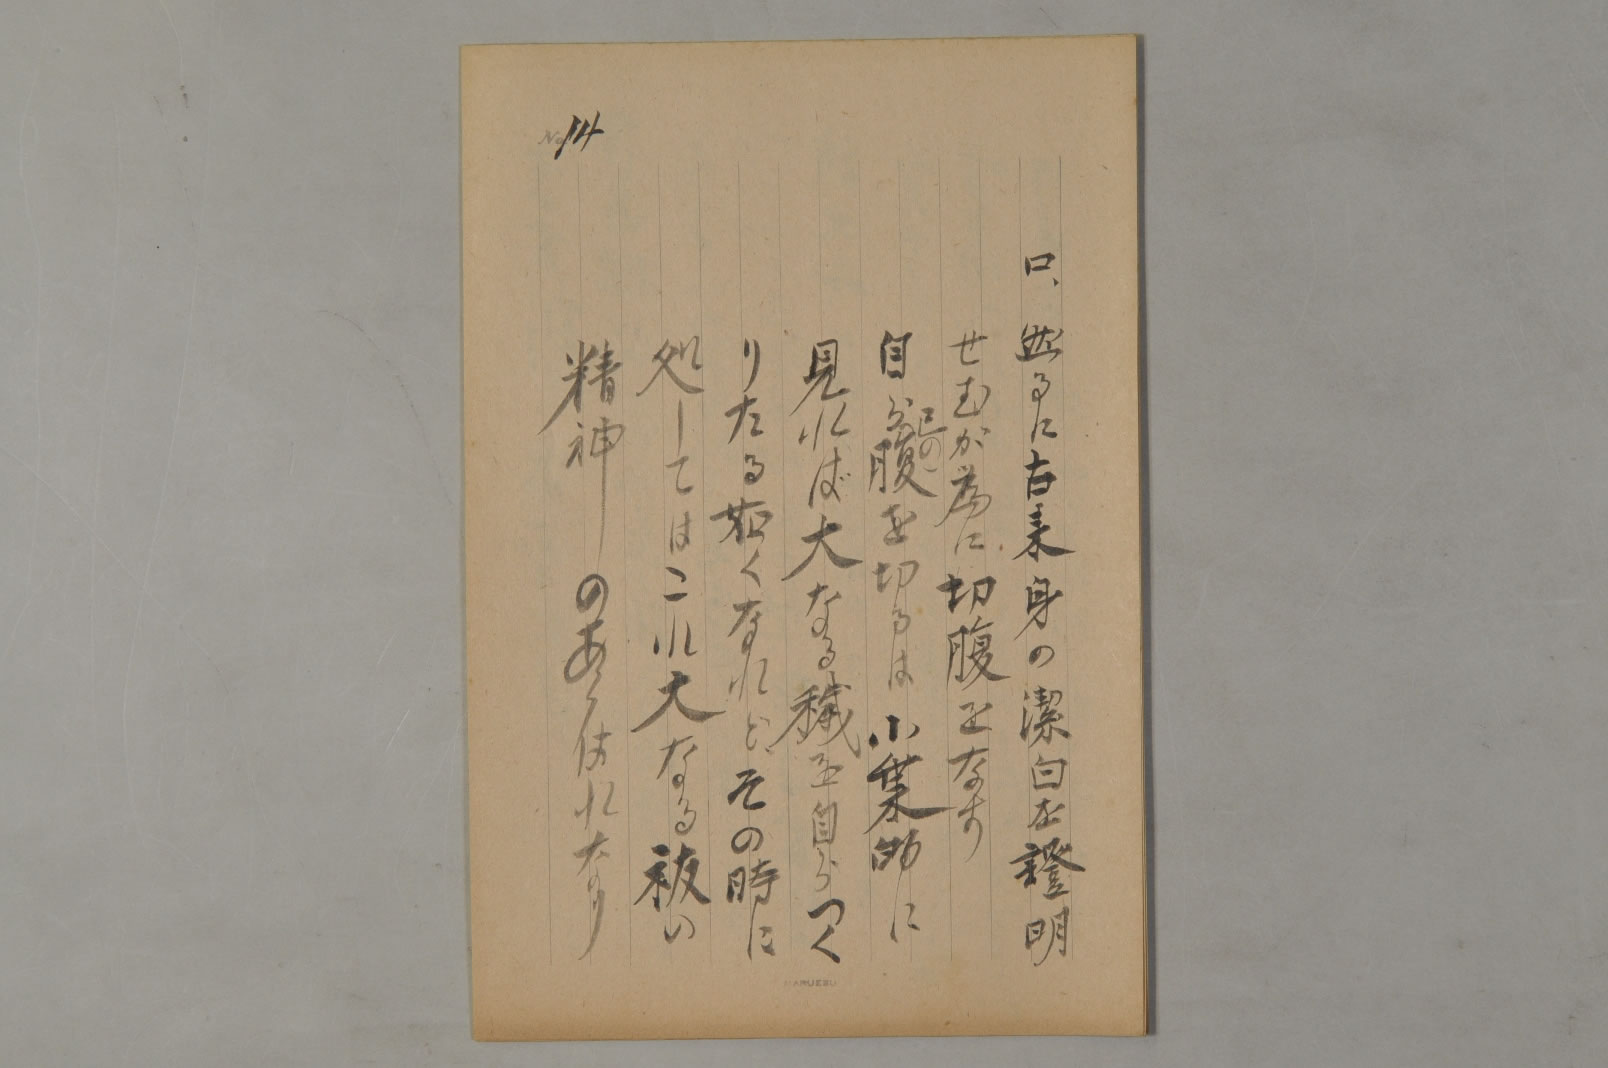 No. 14
ロ、然るに古来身の潔白を證明
せむが為に切腹をなす
自ら己の腹を切るは小乗的に
見れば大なる穢を自らつく
りたる如くなれど、その時に
処してはこれ大なる祓い
精神のあらはれなり